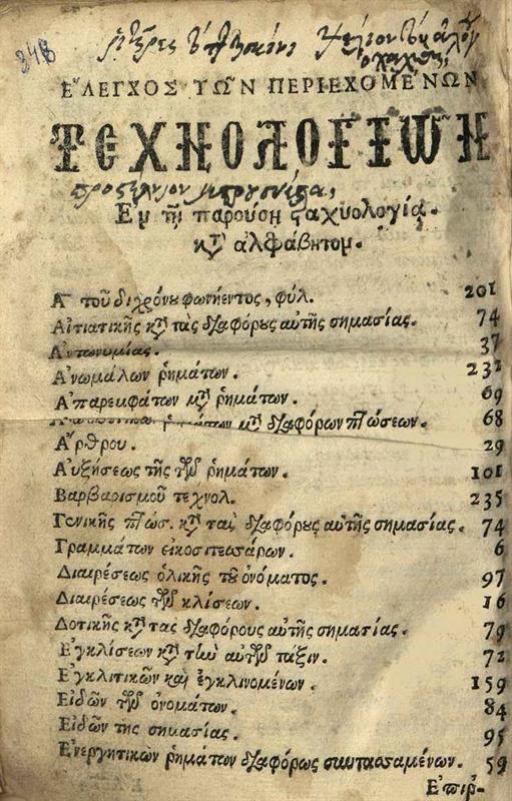 348
ἜΛΕΓΧΟΣ ΤΩ͂Ν ΠΕΡΙΕΧΟΜΈΝΩΝ
ΤΕΧΝΟΛΟΓΙΩ͂Ν
Ἐμ τῇ παρούσῃ ϛαχυολογίᾳ.
κτ̃ ἀλφάβητομ.
Α τοῦ διχρόνου φωνήεντος, φύλ. 201
Αἰτιατικῆς κτ̃ τὰς διαφόρους αὐτῆς σημασίας. 74
Ἀντωνυμίας. 37
Ἀνωμάλων ῥημάτων. 232
Ἀπαρεμφάτων μτ̃ ῥημάτων. 69
ῥημάτων μτ̃ διαφόρων πτώσεων. 68
Ἄρθρου. 29
Αὐξήσεως τῆς τῶν ῥημάτων. 101
Βαρβαρισμοῦ τεχνολ. 235
Γενικῆς πτώσ. κτ̃ τὰς διαφόρους αὐτῆς σημασίας. 74
Γραμμάτων εἰκοσιτεσσάρων. 6
Διαιρέσεως ὁλικῆς τοῦ ὀνόματος. 97
Διαιρέσεως τῶν κλίσεων. 16
Δοτικῆς κτ̃ τας διαφόρους αὐτῆς σημασίας. 79
Ἐγκλίσεων κτ̃ τὴν αὐτῶν τάξιν. 72
Ἐγκλιτικῶν καὶ ἐγκλινομένων. 159
Εἰδῶν τῶν ὀνομάτων. 84
Εἰδῶν της σημασίας. 95
Ἐνεργητικῶν ῥημάτων διαφόρως συντασσαμένων. 59
Ἐπιῤ-